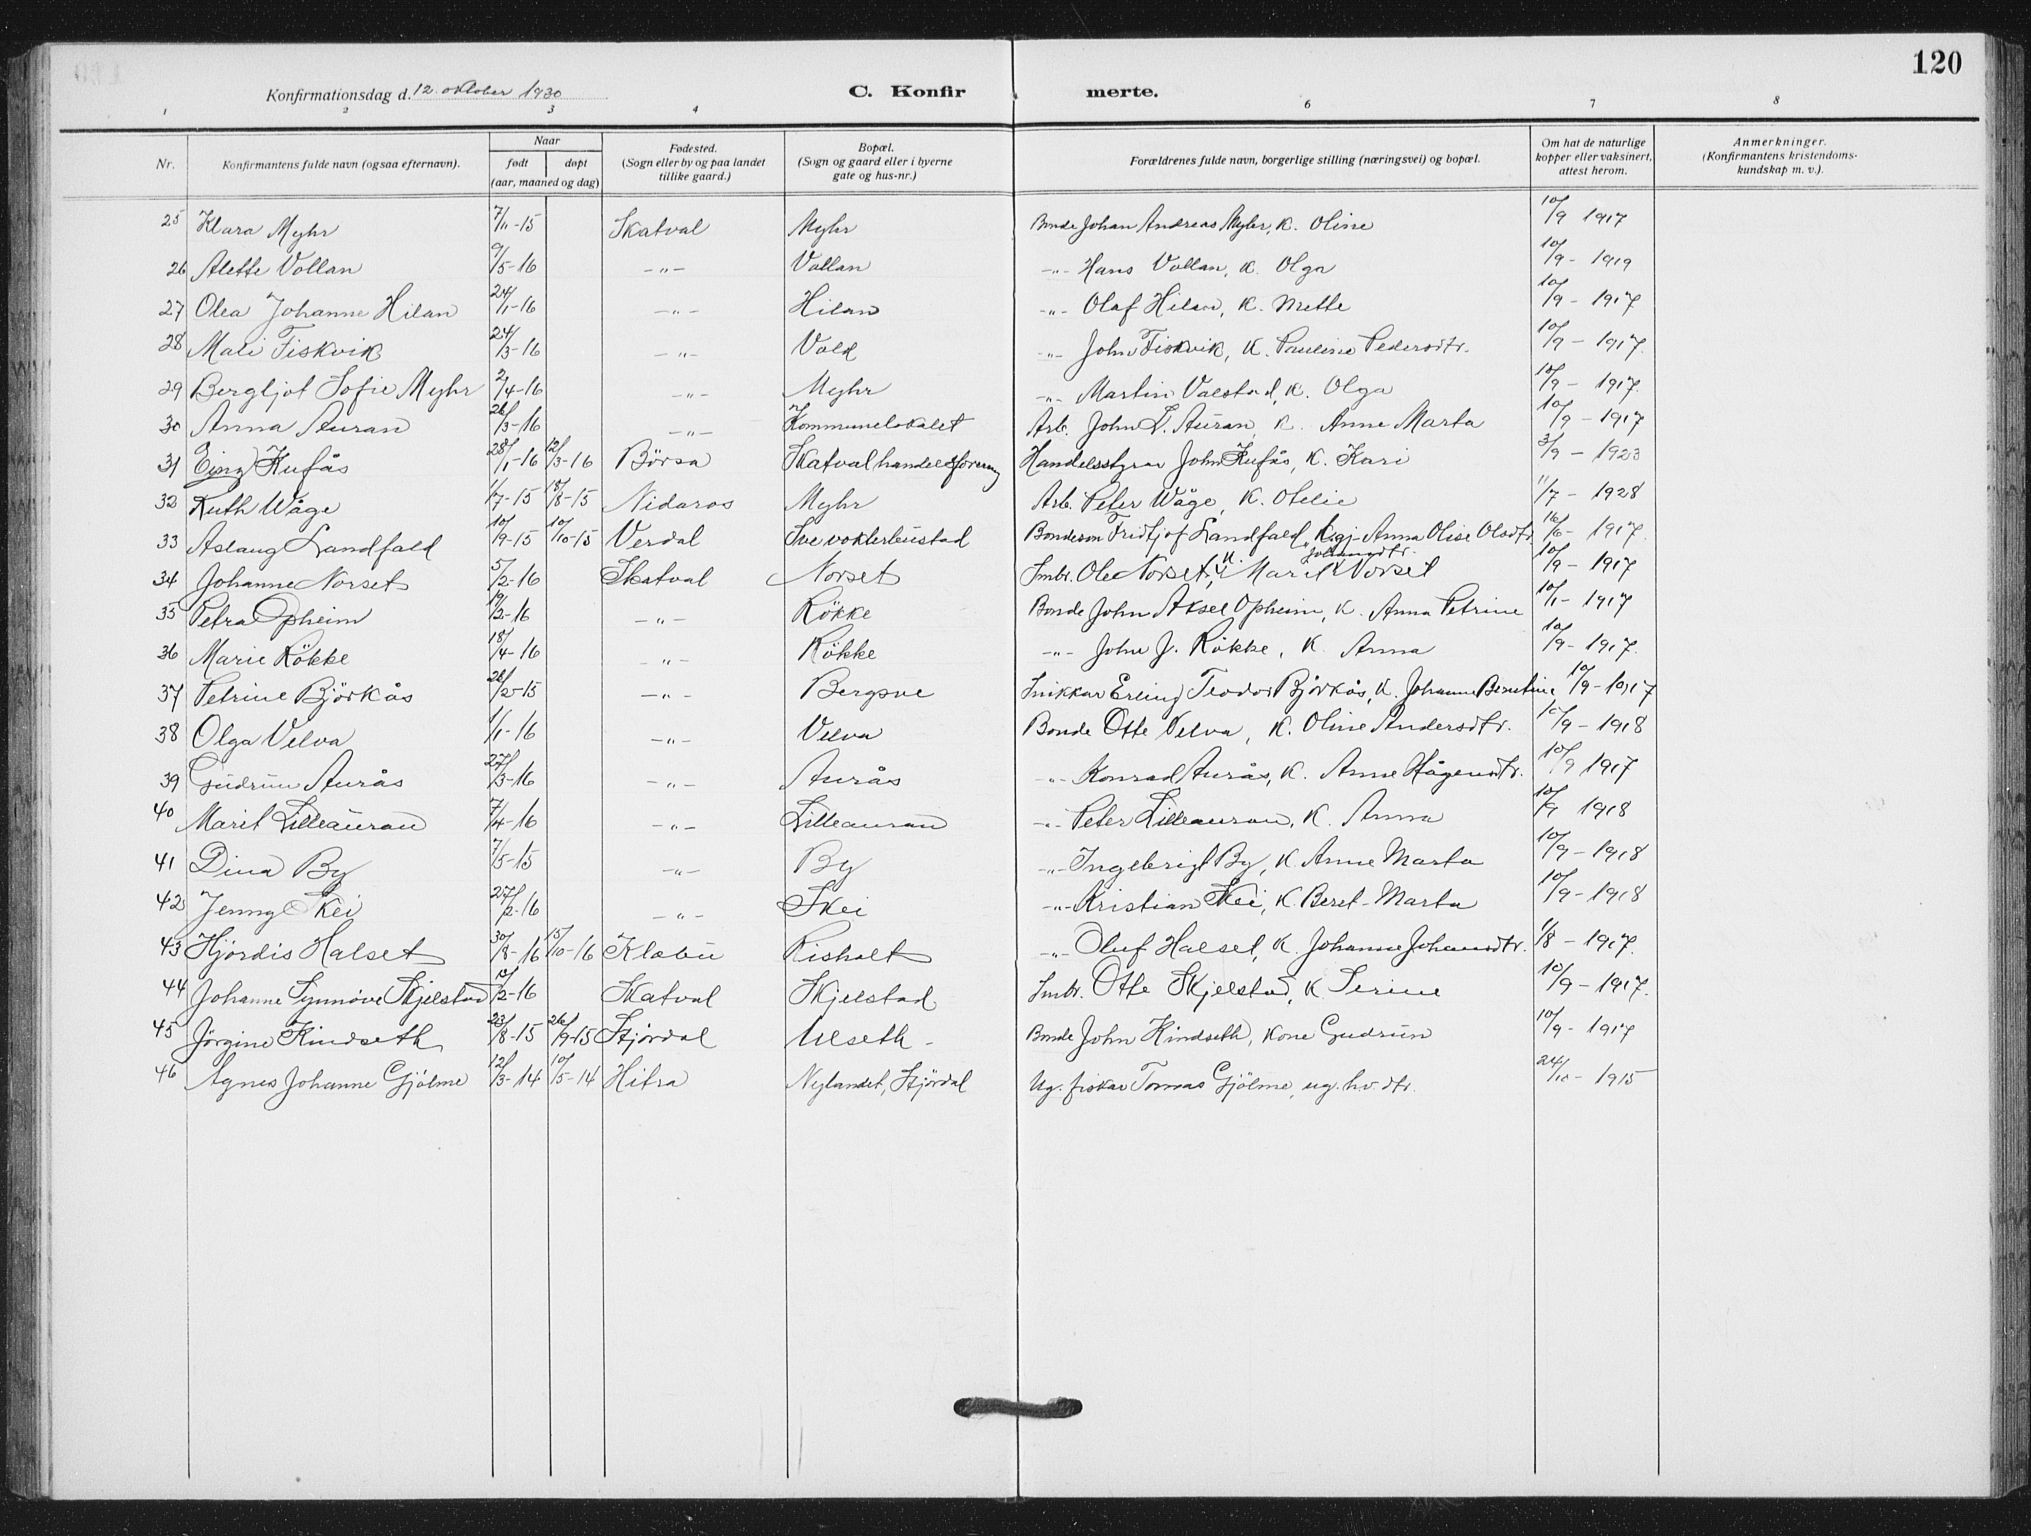 120
Konfirmationsdag d. 12. oktober 1930 C. Konfirmerte.
1 2 3 4 5 6 7 8
Nr. Konfirmantens fulde navn (ogsaa efternavn). Naar født døpt (aar, maaned og dag) Fødested. (Sogn eller by og paa landet tillike gaard.) Bopæl. (Sogn og gaard eller i byerne gate og hus-nr.) Forældrenes fulde navn, borgerlige stilling (næringsvei) og bopæl. Om hat de naturlige kopper eller vaksinert, attest herom. Anmerkninger. (Konfirmantens kristendoms-kundskap m. v.).
25 Klara Myhr 7/11-15 Skatval Myhr Bonde Johan Andreas Myhr, K. Oline 10/9 1917
26 Alette Vollan 9/5-16 -"- Vollan -"- Hans Vollan, K. Olga 10/9 - 1919
27 Olea Johanne Hilan 24/1-16 -"- Hilan -"- Olaf Hilan, K. Mette 10/9 - 1917
28 Mari Fiskvik 24/3-16 -"- Vold -"- John Fiskvik, K. Pauline Pedersdtr. 10/9 - 1917.
29 Bergljot Sofie Myhr 2/4-16 -"- Myhr -"- Martin Valstad, K. Olga 10/9 - 1917.
30 Anna Auran 26/3-16 -"- Kommunelokalet Arb. John L. Auran K. Anne Marta 10/9 - 1917
31 Kufås 28/1-16 12/3-16 Börsa Skatval handelsforening Handelsstyrar John Kufås, K. Kari 3/9 - 1923
32 Ruth Wåge 1/7-15 18/8-15 Nidaros Myhr Arb. Peter Wåge, K. Otelie 11/7 - 1928
33 Aslaug Landfald 10/9-15 10/10-15 Verdal Bondeson Fridtjof Landfald, gj. Anna Olise Olsdtr. 16/6 - 1917.
34 Johanne Norset 5/2-16 Skatval Norset Smbr. Ole Norset, K. Marit Johansdtr. Norset 10/9 - 1917
35 Petra Opheim 19/2-16 -"- Rökke Bonde John Aksel Opheim, K. Anna Petrine 10/1 - 1917
36 Marie Rökke 18/4-16 -"- Rökke -"- John J. Rökke, K. Anna 10/9 - 1917.
37 Petrine Björkås 28/2-15 -"- Bergsve Snikkar Erling Teodor Björkås, K. Johanne Berntine 10/9 - 1917
38 Olga Velva 1/1-16 -"- Velva Bonde Otte Velva, K. Oline Andersdtr. 10/9 - 1918
39 Gudrun Aurås 27/3-16 -"- Aurås -"- Konrad Aurås, K. Anne Hågensdtr. 10/9 1917
40 Marit Lilleauran 7/4-16 -"- Lilleauran -"- Peter Lilleauran, K. Anna 10/9 1918
41 Dina By 7/5-15 -"- By -"- Ingebrigt By, K. Anne Marta 10/9 - 1918
42 Jenny Skei 27/2-16 -"- Skei -"- Kristian Skei, K. Beret-Marta 10/9 - 1918
43 Hjördis Halset 30/8-16 15/10-16 Klæbu Risholt -"- Oluf Halset, K. Johanne Johansdtr. 1/8 - 1917.
44 Johanne Synnöve Skjelstad 10/2-16 Skatval Skjelstad Smbr. Otte Skjelstad, K. Serine 10/9 - 1917.
45 Jörgine Kindseth 23/8-15 26/9-15 Stjördal Ulseth - Bonde John Kindseth, Kone Gudrun 10/9 - 1917
46 Agnes Johanne Gjölme 12/3-14 10/5-14 Hitra Nylandet, Stjördal Ug. fiskar Tomas Gjölme, ug. hv. dtr. 24/10 - 1915